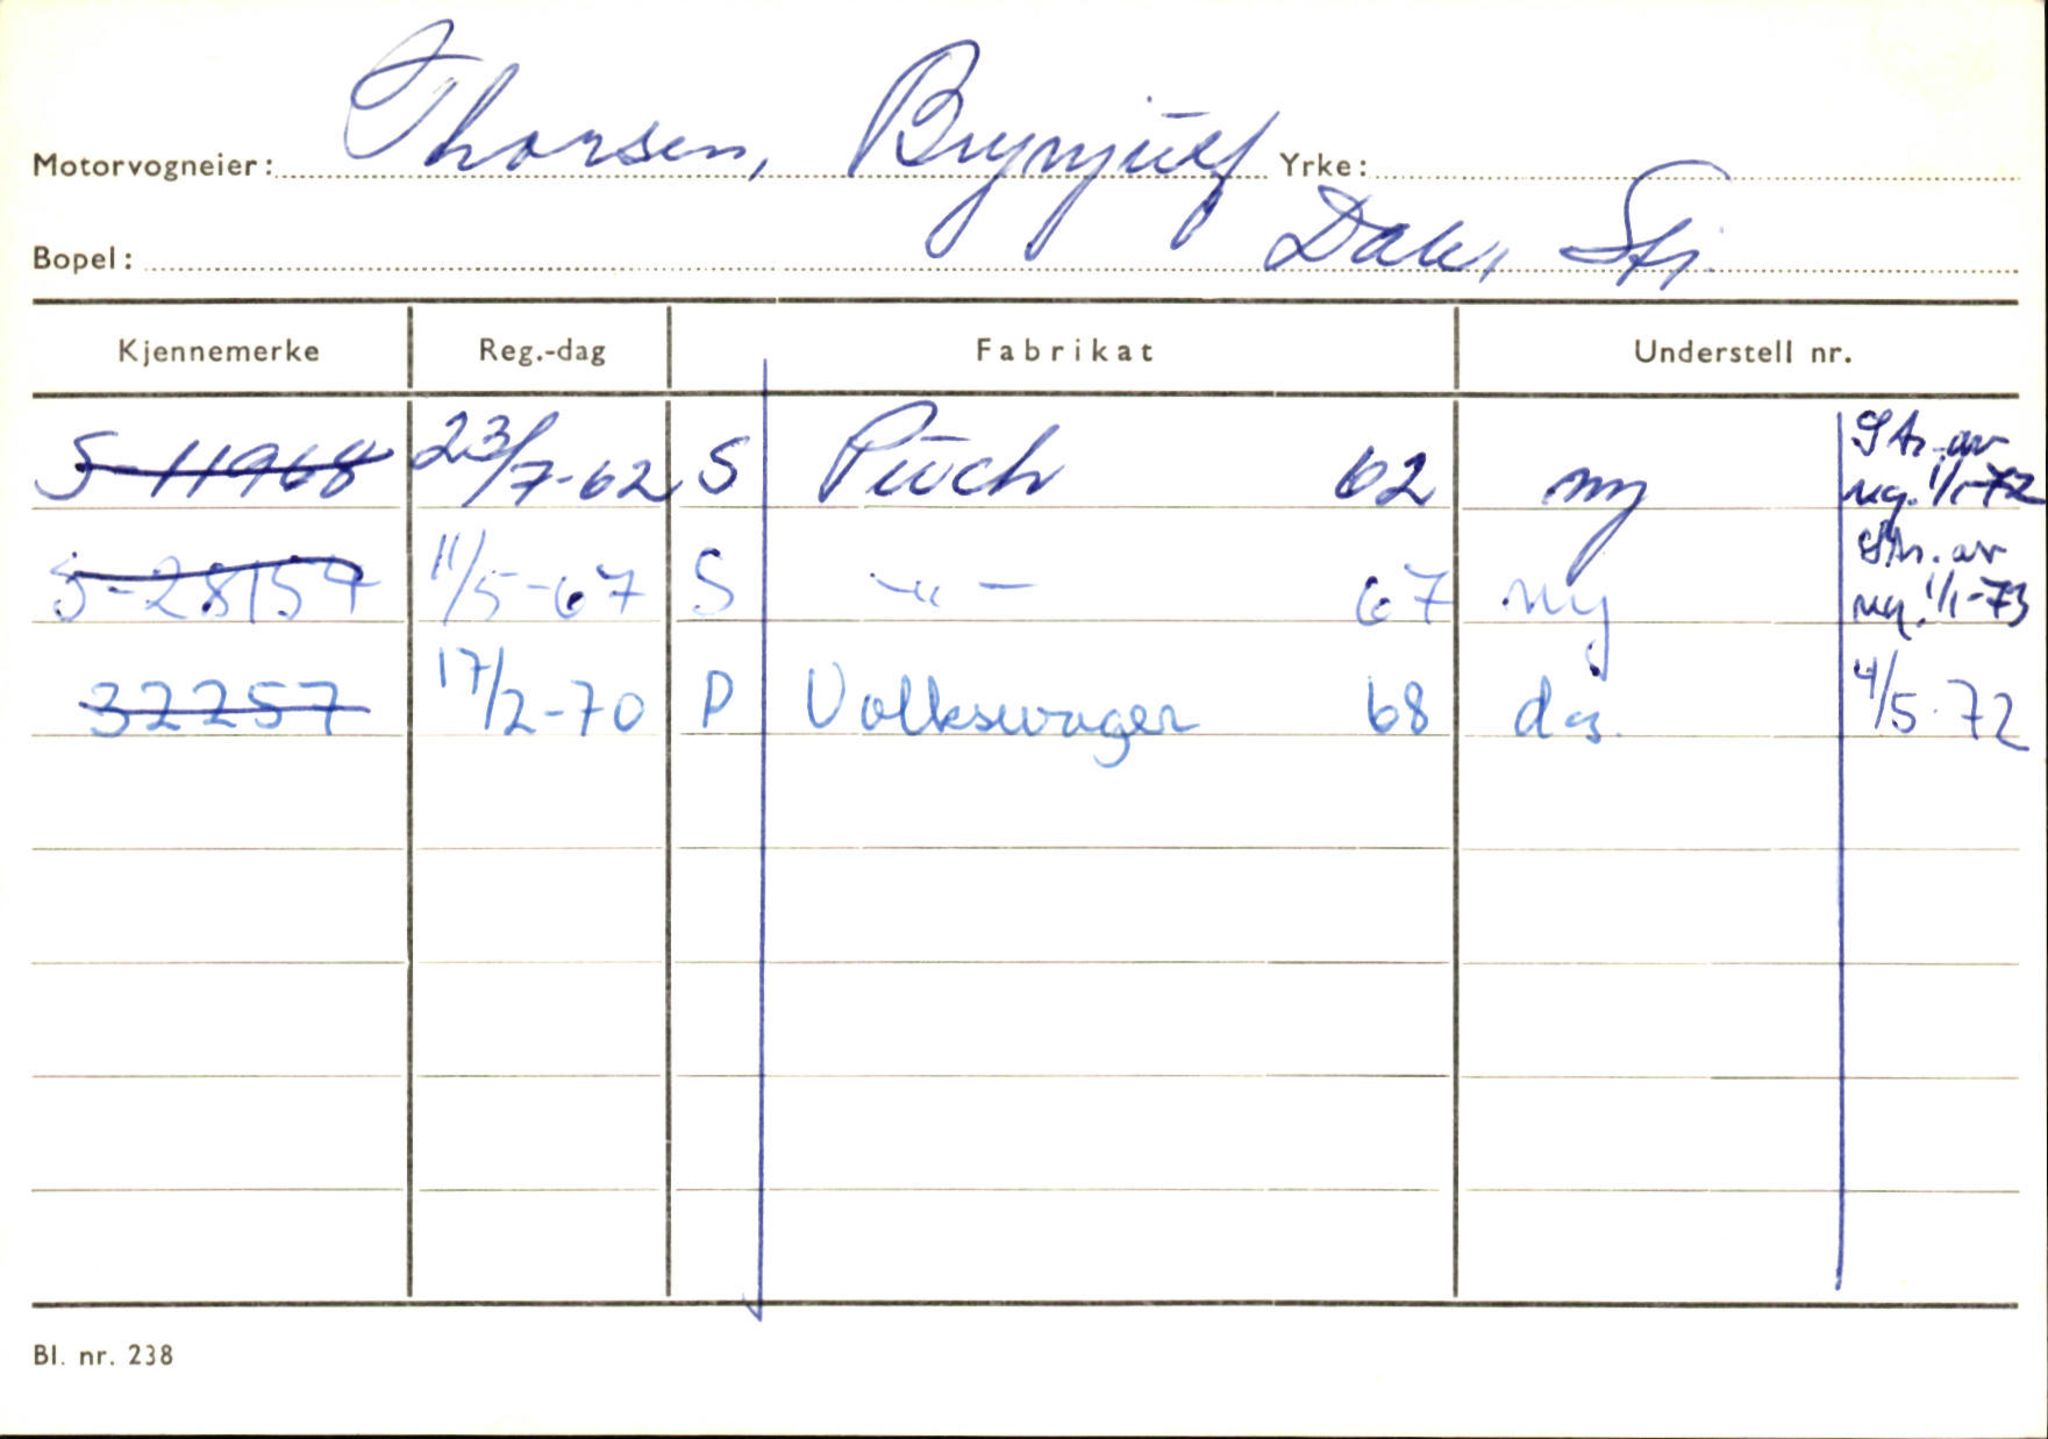 Motorvogneier: Thorsen, Brynjulf Yrke:
Bopel: Dale, Sfj.
Kjennemerke Reg.-dag Fabrikat Understell nr.
S-11968 23/7-62 S Puch 62 ny Str. av
ng. 1/1-72
S-28154 11/5-67 S -"- 67 ny Str. av
ng. 1/1-73
32257 17/2-70 P Volkswagen 68 ds. 4/5-72
Bl. nr. 238